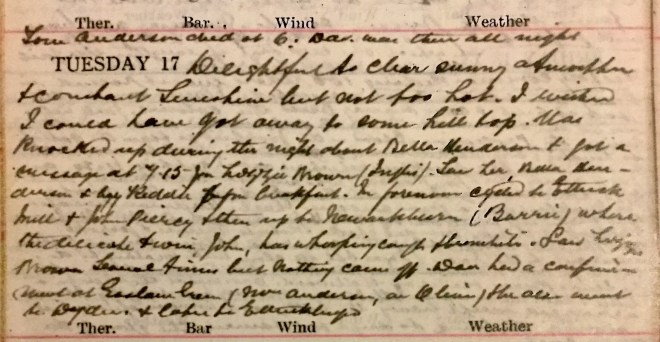 Ther. Bar. Wind Weather
Tom Anderson died at 6. Dav. was there all night
TUESDAY 17 Delightful clear sunny atmosphere
& constant sunshine but not too hot. I wished
I could have got away to some hill top. Was
knocked up during the night about Bella Henderson & got a
message at 7.15 for Brown Saw her, Bella Hen-
derson & Riddle before breakfast. In forenoon cycled to Ettrick
mill & John Piercy & then up to Newarkburn (Barrie) where
the delicate twin John, has whooping cough & bronchitis. Saw
Brown several times but nothing came off. Dav had a confine-
ment at (Mrs Anderson, an ) She also went
to &
Ther. Bar Wind Weather